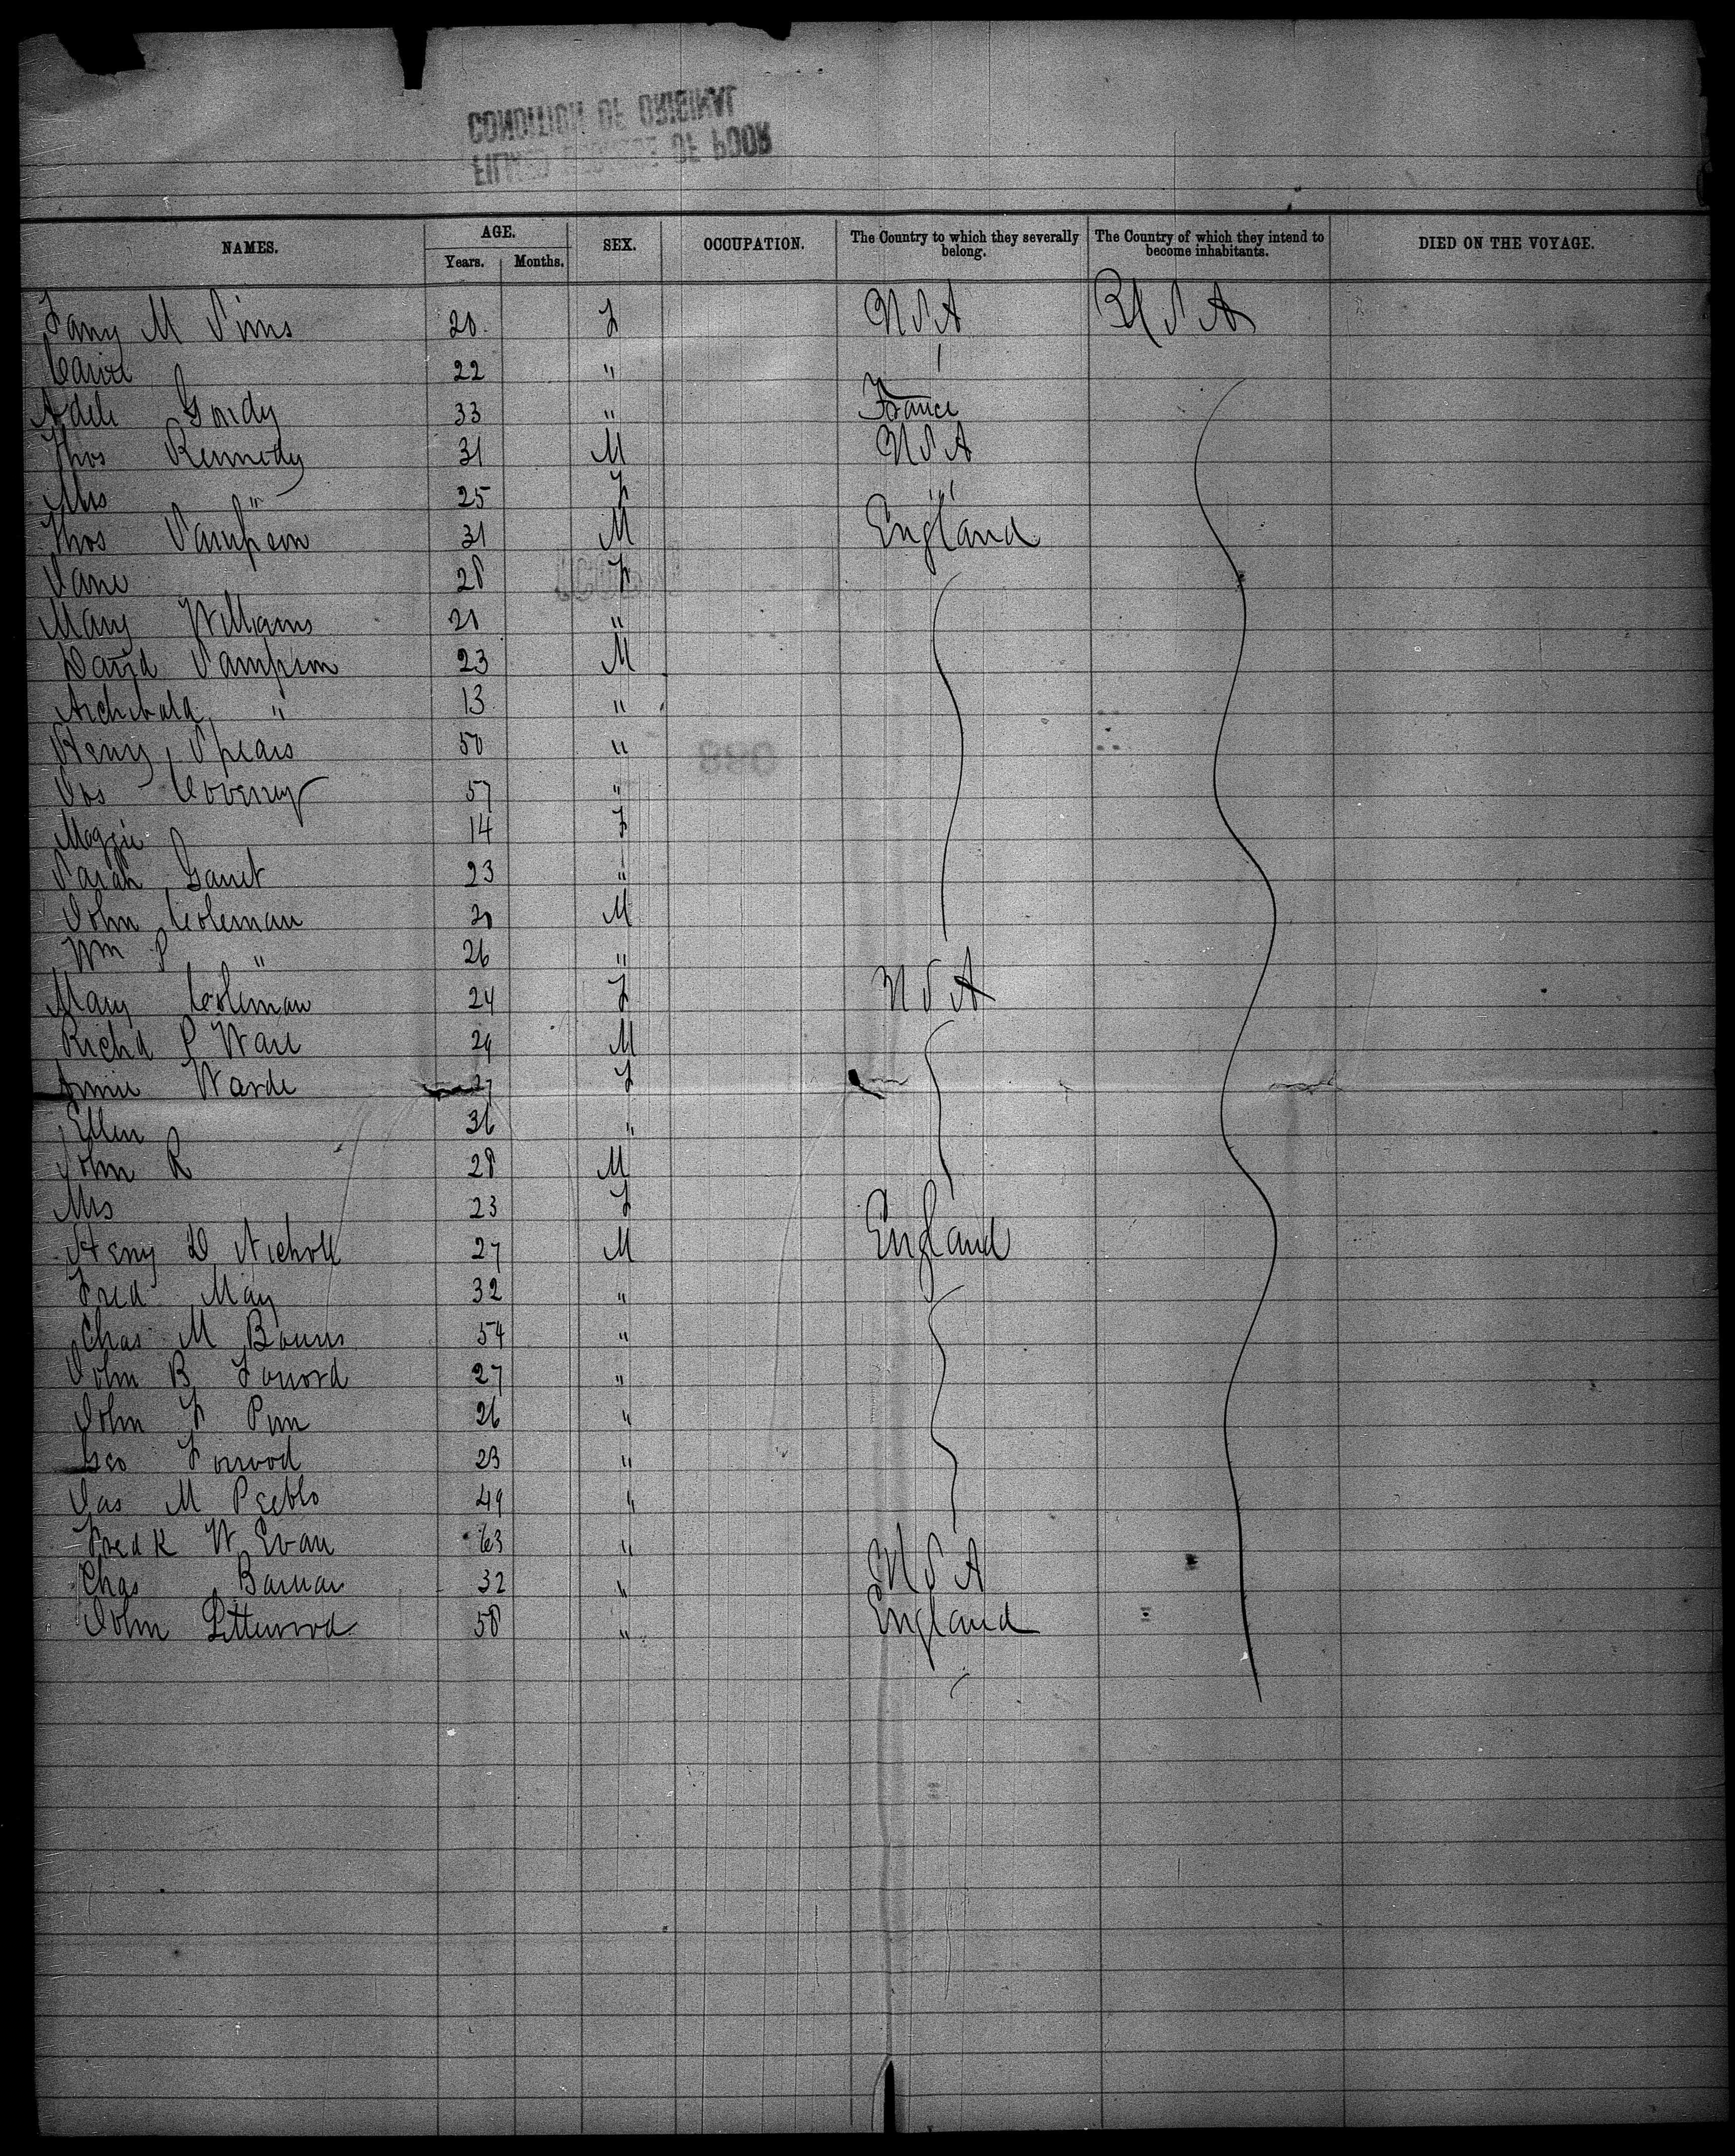 CONDITION OF ORIGINAL
FILMED BECAUSE OF POOR
NAMES. AGE. Years. Months. SEX. OCCUPATION. The Country to which they severally belong. The Country of which they intend to become inhabitants. DIED ON THE VOYAGE.
Fany M Sims 20 F U S A U S A
Carol 22 "
Adele Gordy 33 " France
Thos Kennedy 31 M U S A
Mrs " 25 F "
Thos Sampson 31 M England
Jane 28 F
Mary Williams 21 "
David Sampson 23 M
Archibald " 13 "
Henry Spears 50 "
Jos Coverney 57 "
Maggie 14 F
Sarah 23 "
John Coleman 20 M
Wm P " 26 "
Mary Coleman 24 F U S A
Richd P Ware 24 M
Annie Warde 27 F
Ellen 36 "
John R 28 M
Mrs 23 F
Heny D Nicholl 27 M England
Fred May 32 "
Chas M 54 "
John B 27 "
John F Pim 26 "
Geo Forwood 23 "
Jas M Peeblo 49 "
Fred K W Evan 63 "
Chas 32 " U S A
John Littlewood 58 " England